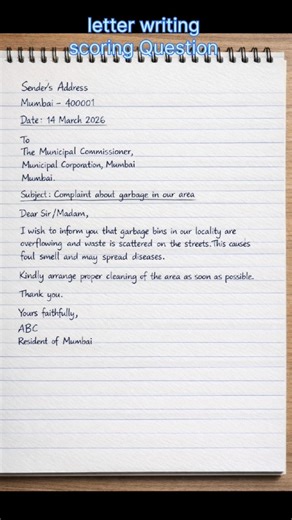 letter writing
scoring Question
Sender's Address
Mumbai – 400001
Date: 14 March 2026
To
The Municipal Commissioner,
Municipal Corporation, Mumbai
Mumbai.
Subject: Complaint about garbage in our area
Dear Sir/Madam,
I wish to inform you that garbage bins in our locality are
overflowing and waste is scattered on the streets. This causes
foul smell and may spread diseases.
Kindly arrange proper cleaning of the area as soon as possible.
Thank you.
Yours faithfully,
ABC
Resident of Mumbai